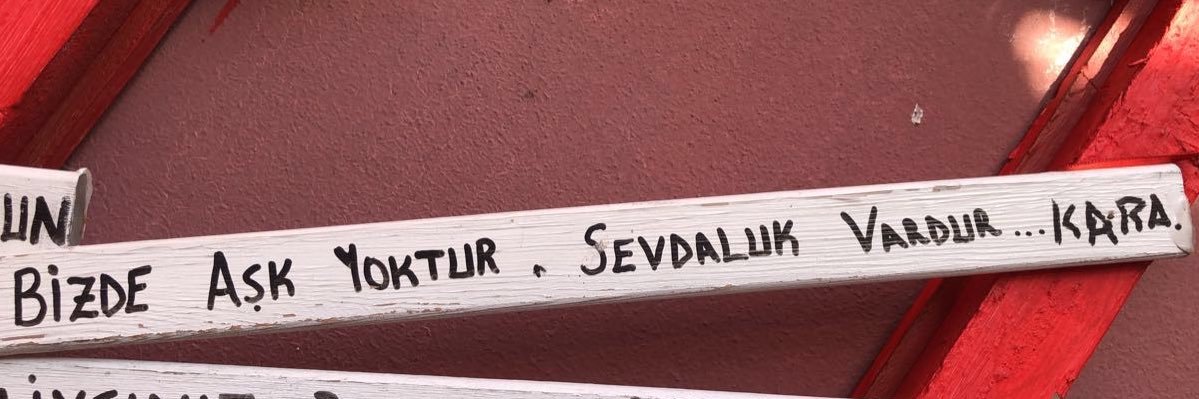 UN
BİZDE AŞK YOKTUR. SEVDALUK VARDUR...KARA.